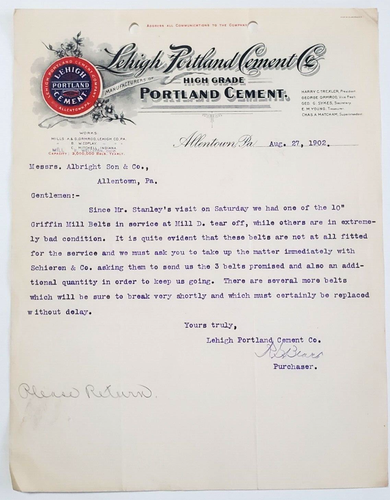 Address All Communications to the Company
Lehigh Portland Cement Co
MANUFACTURERS OF
HIGH GRADE
PORTLAND CEMENT.
LEHIGH PORTLAND CEMENT COMPANY
LEHIGH
PORTLAND
CEMENT
ALLENTOWN, PA.
HARRY C. TREXLER, PRESIDENT
GEORGE ORMROD, VICE PRES.
GEO. G. SYKES, SECRETARY
E. M. YOUNG, TREASURER
CHAS. A. MATCHAM, SUPERINTENDENT
WORKS
MILLS A & D ORMROD, LEHIGH CO. PA.
Allentown, Pa. Aug. 27, 1902.
Messrs. Albright Son & Co.,
Allentown, Pa.
Gentlemen:-
Since Mr. Stanley's visit on Saturday we had one of the 10"
Griffin Mill Belts in service at Mill D. tear off, while others are in extreme-
ly bad condition. It is quite evident that these belts are not at all fitted
for the service and we must ask you to take up the matter immediately with
Schieren & Co. asking them to send us the 3 belts promised and also an addi-
tional quantity in order to keep us going. There are several more belts
which will be sure to break very shortly and which must certainly be replaced
without delay.
Yours truly,
Lehigh Portland Cement Co.
Purchaser.
Please Return.